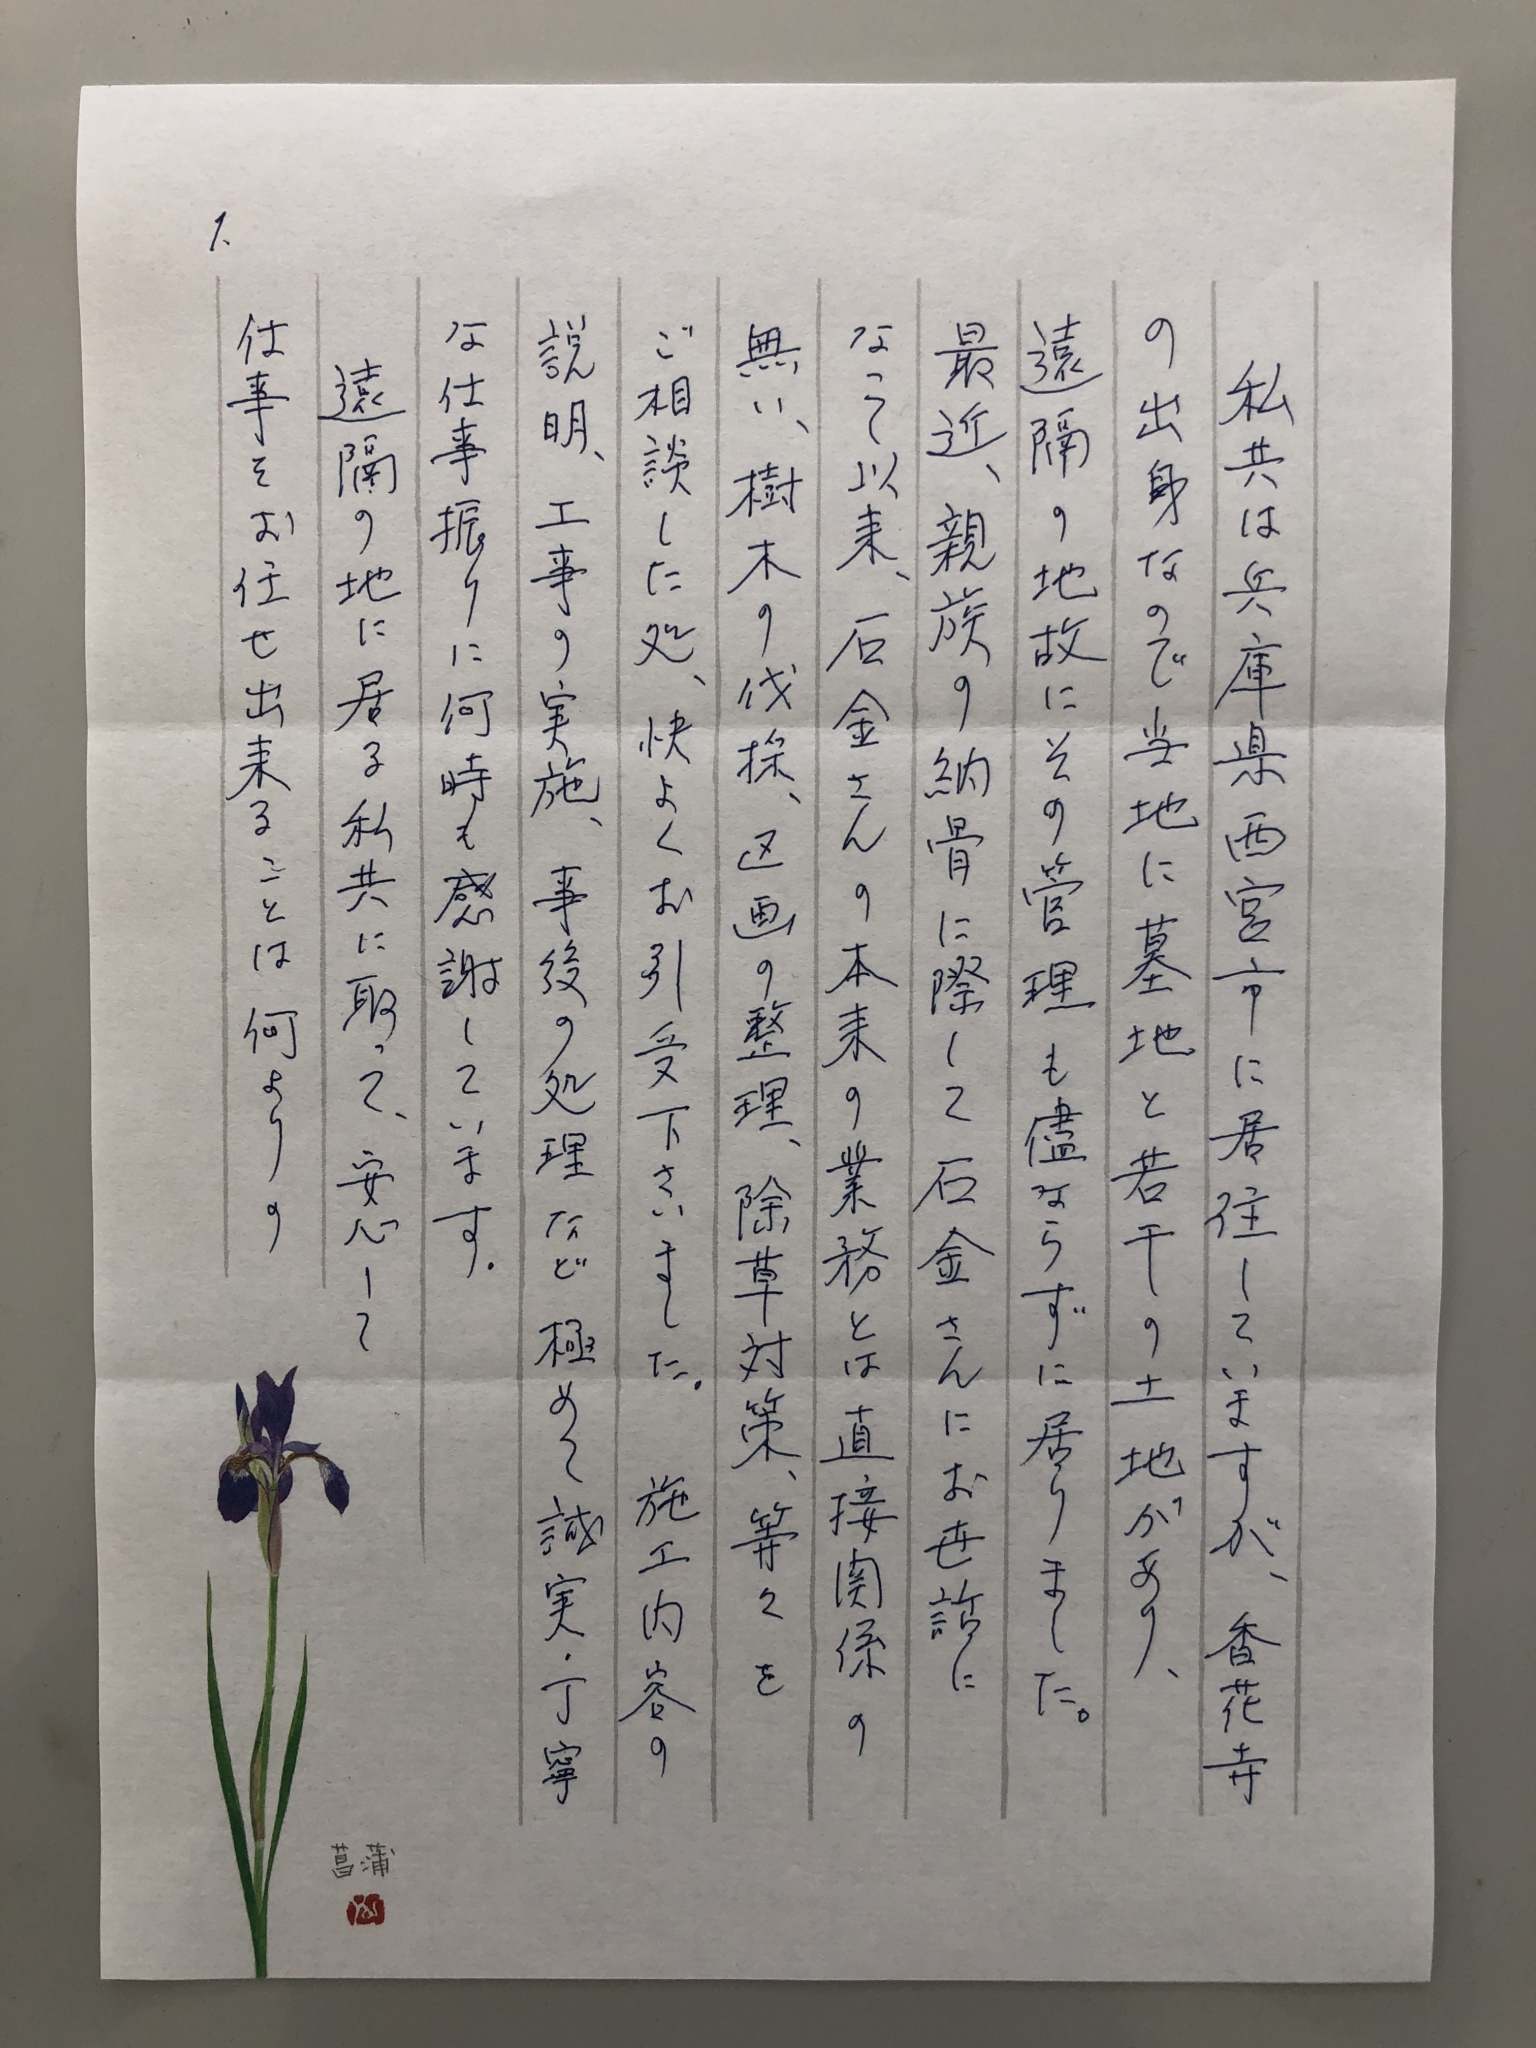 私共は兵庫県西宮市に居住していますが、香花寺
の出身なので当地に墓地と若干の土地があり、
遠隔の地故にその管理も儘ならずに居りました。
最近、親族の納骨に際して石金さんにお世話に
なって以来、石金さんの本来の業務とは直接関係の
無い、樹木の伐採、区画の整理、除草対策、等々を
ご相談した処、快よくお引受下さいました。 施工内容の
説明、工事の実施、事後の処理など極めて誠実・丁寧
な仕事振りに何時も感謝しています。
遠隔の地に居る私共に取って、安心して
仕事をお任せ出来ることは何よりの
1.
菖蒲